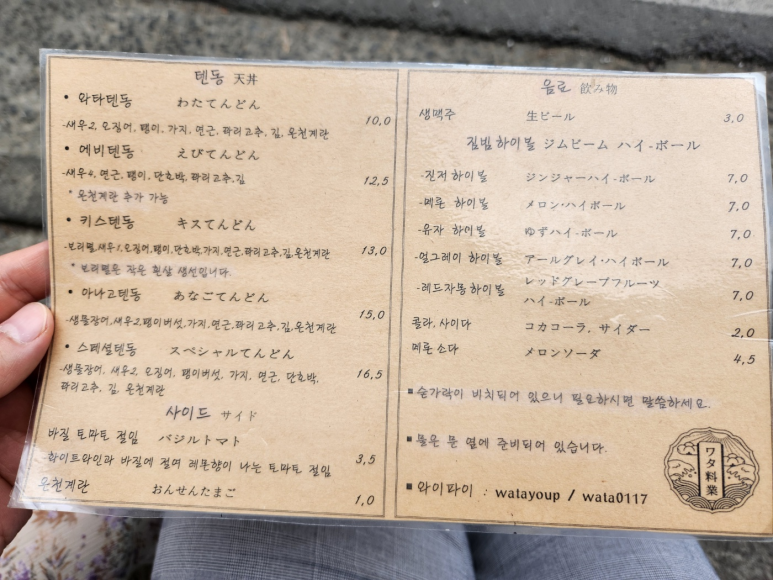 텐동 天丼
• 와타텐동 わたてんどん
10,0
-새우2, 오징어, 팽이, 가지, 연근, 꽈리고추, 김, 온천계란
• 에비텐동 えびてんどん
-새우4, 연근, 팽이, 단호박, 꽈리고추, 김 12,5
* 온천계란 추가 가능
• 키스텐동 キスてんどん
-보리멸,새우1,오징어,팽이,단호박,가지,연근,꽈리고추,김,온천계란 13,0
* 보리멸은 작은 흰살 생선입니다.
• 아나고텐동 あなごてんどん
-생물장어,새우2,팽이버섯,가지,연근,꽈리고추,김,온천계란 15,0
• 스페셜텐동 スペシャルてんどん
-생물장어, 새우2, 오징어, 팽이버섯, 가지, 연근, 단호박, 16,5
꽈리고추, 김, 온천계란
사이드 サイド
바질 토마토 절임 バジルトマト
-화이트와인과 바질에 절여 레몬향이 나는 토마토 절임 3,5
온천계란 おんせんたまご 1,0
음료 飲み物
생맥주 生ビール 3,0
짐빔하이볼 ジムビーム ハイ-ボール
-진저 하이볼 ジンジャーハイ-ボール 7,0
-메론 하이볼 メロン・ハイボール 7,0
-유자 하이볼 ゆずハイ-ボール 7,0
-얼그레이 하이볼 アールグレイ・ハイボール 7,0
-레드자몽하이볼 レッドグレープフルーツ
ハイ-ボール 7,0
콜라, 사이다 コカコーラ, サイダー 2,0
메론 소다 メロンソーダ 4,5
▪ 숟가락이 비치되어 있으니 필요하시면 말씀하세요.
▪ 물은 문 옆에 준비되어 있습니다.
▪ 와이파이 : watayoup / wata0117
ワタ料業